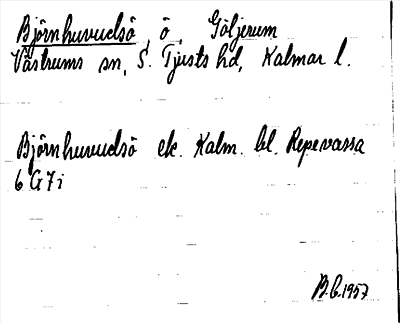 Björnhuvudsö, ö, Göljerum
Västrums sn, S. Tjusts hd, Kalmar l.
Björnhuvudsö ek. Kalm. bl. Repevassa
6 G 7 i
B.C. 1957